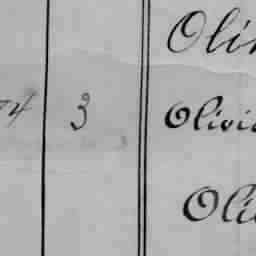 Oli
4 3 Olivi
Oli